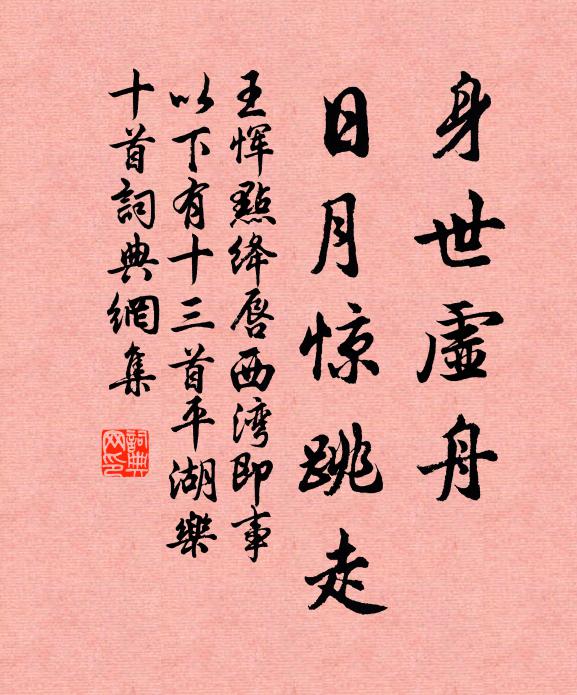 身世虛舟
日月惊跳走
王恽點绛唇西湾即事
以下有十三首平湖樂
十首詞典網集
詞典網印